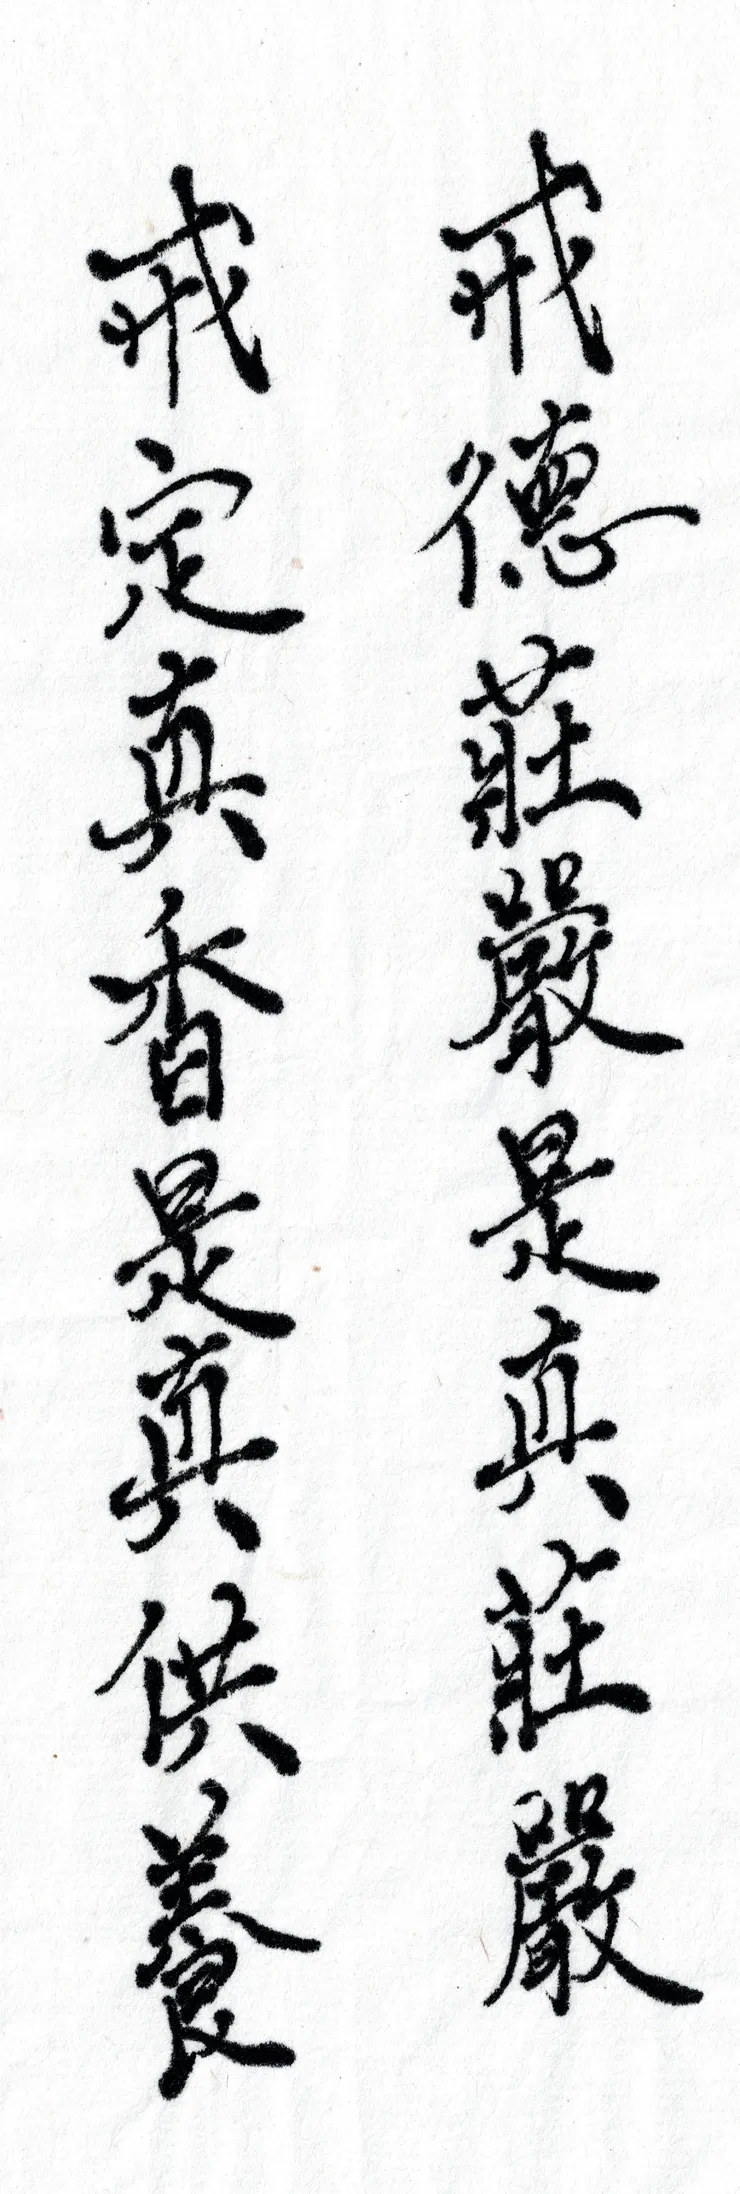 戒德莊嚴是真莊嚴
戒定真香是真供養